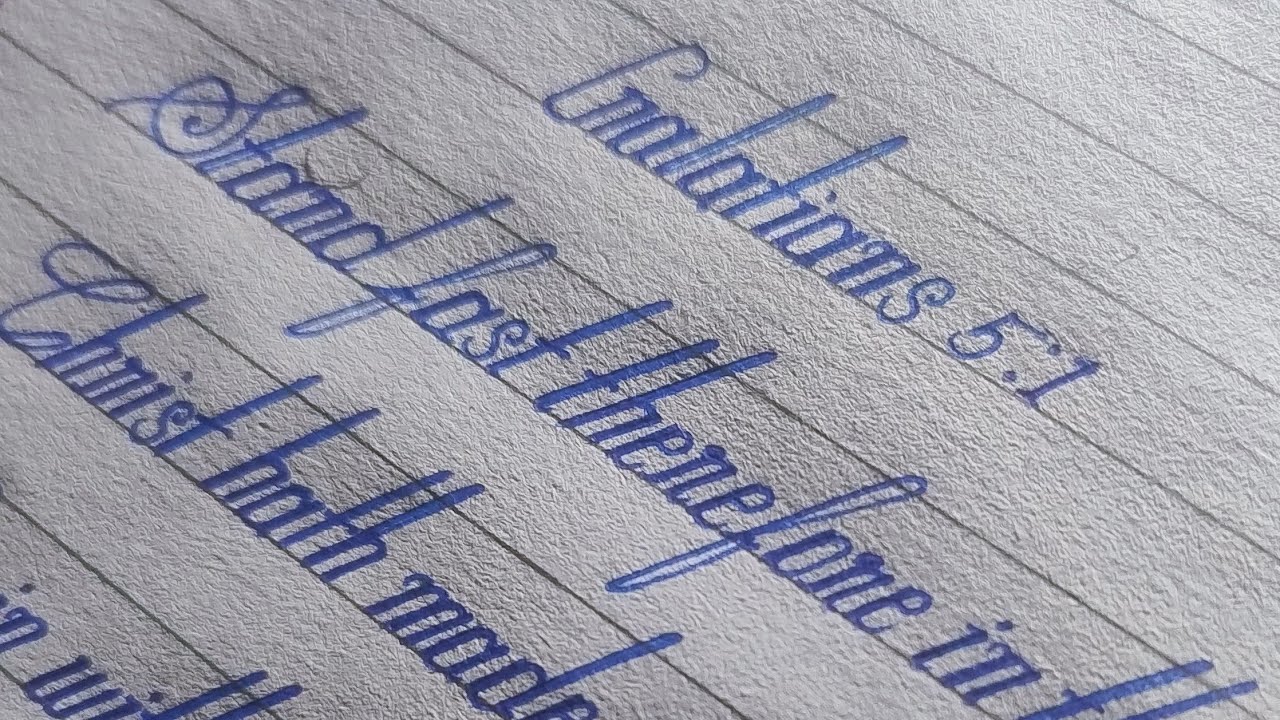 Galatians 5:1
Stand fast therefore in th
Christ hath made
in with